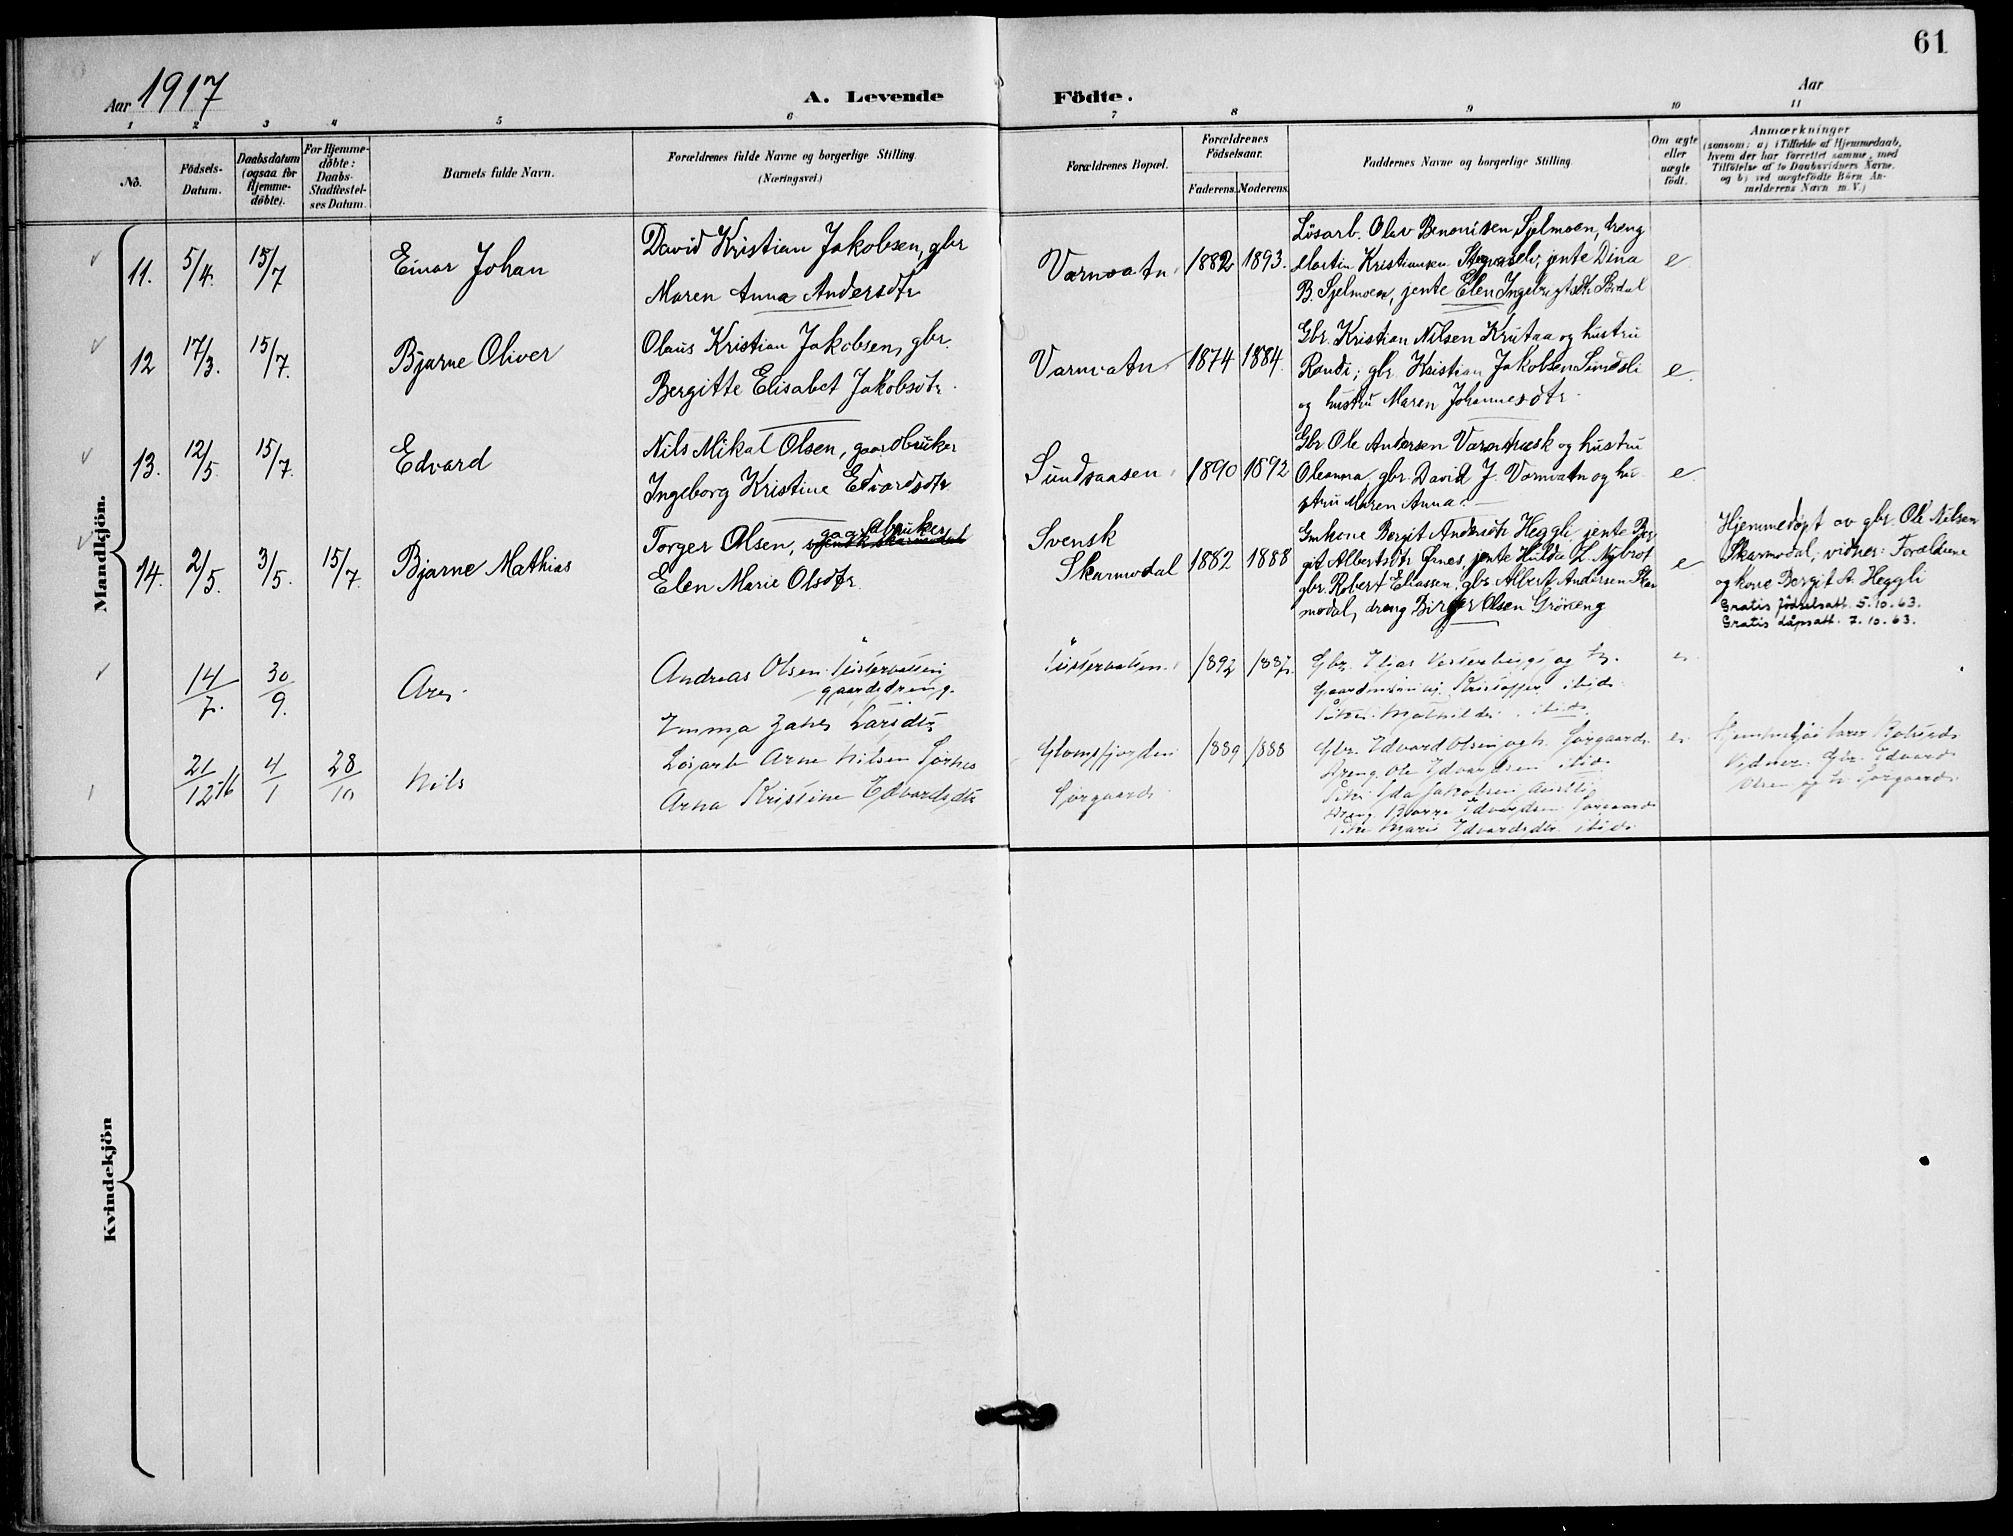 61
Aar 1917
A. Levende Födte.
Aar
1 2 3 4 5 6 7 8 9 10 11
No.
Födsels-
Datum.
Daabsdatum
(ogsaa for
Hjemme-
döbte).
For Hjemme-
döbte:
Daabs-
Stadfæstel-
ses Datum.
Barnets fulde Navn.
Forældrenes fulde Navne og borgerlige Stilling.
(Næringsvei.)
Forældrenes Bopæl.
Forældrenes
Födselsaar.
Faderens. Moderens.
Faddernes Navne og borgerlige Stilling.
Om ægte
eller
uægte
födt.
Anmærkninger
(saasom: a) i Tilfælde af Hjemmedaab,
hvem der har forrettet samme, med
Tilföielse af to Daabsvidners Navne,
og b) ved uægtefödte Börn An-
melderens Navn m. V.)
Mandkjön.
11. 5/4. 15/7 Einar Johan
David Kristian Jakobsen, gbr
Maren Anna Andersdtr
Varnvatn 1882 1893.
Lösarb. Olav Benonisen Sjelmoen, dreng
Martin Kristiansen, jente Dina
B. Sjelmoen, jente Elen Ingebrigtsdtr
e
12 17/3. 15/7. Bjarne Oliver
Olaus Kristian Jakobsen, gbr.
Bergitte Elisabet Jakobsdtr.
Varnvatn 1874 1884.
Gbr. Kristian Nilsen Krutaa og hustru
Randi; gbr. Kristian Jakobsen Sundsli
og hustru Maren Johannesdtr.
e.
13. 12/5. 15/7. Edvard
Nils Mikal Olsen, gaardbruker
Ingeborg Kristine Edvardsdtr
Sundsaasen 1890 1892
Gbr Ole Andersen og hustru
Oleanna, gbr. David J. Varnvatn og hu-
stru Maren Anna.
e.
14. 2/5. 3/5. 15/7. Bjarne Mathias
Torger Olsen, gaardbruker
Elen Marie Olsdtr.
Svensk
Skarmodal 1882 1888
Gmkone Bergit Andersdtr Heggli, jente Ber-
git Albertsdtr, jente Hilda L. Nybrot
gbr. Robert Eliassen, gbr. Albert Andersen Skar-
modal, dreng Birger Olsen Gröneng
e
Hjemmedøpt av gbr Ole Nilsen
Skarmodal, vidner: Forældrene
og kone Bergit A. Heggli
Gratis födselsatt. 5.10.63.
Gratis dåpsatt. 7.10.63.
14/7. 30/9. Are
Andreas Olsen
gaardsdreng.
Emma Larsdtr
1892
Gbr. Elias og
Kristoffer ibid.
Mathilde ibid.
21/12-16 4/1 28/10 Nils
Løsarb Arne Nilsen
Arna Kristine Edvardsdtr
Glomfjorden 1889 1888
Sørgaard
Gbr. Edvard Olsen og h. Sørgaard.
Dreng Ole Edvardsen ibid.
Jakobsen
Dreng Edvardsen Sørgaard
Marie Edvardsdtr ibid.
Vidner: Gbr. Edvard
Olsen og h. Sørgaard.
Kvindekjön